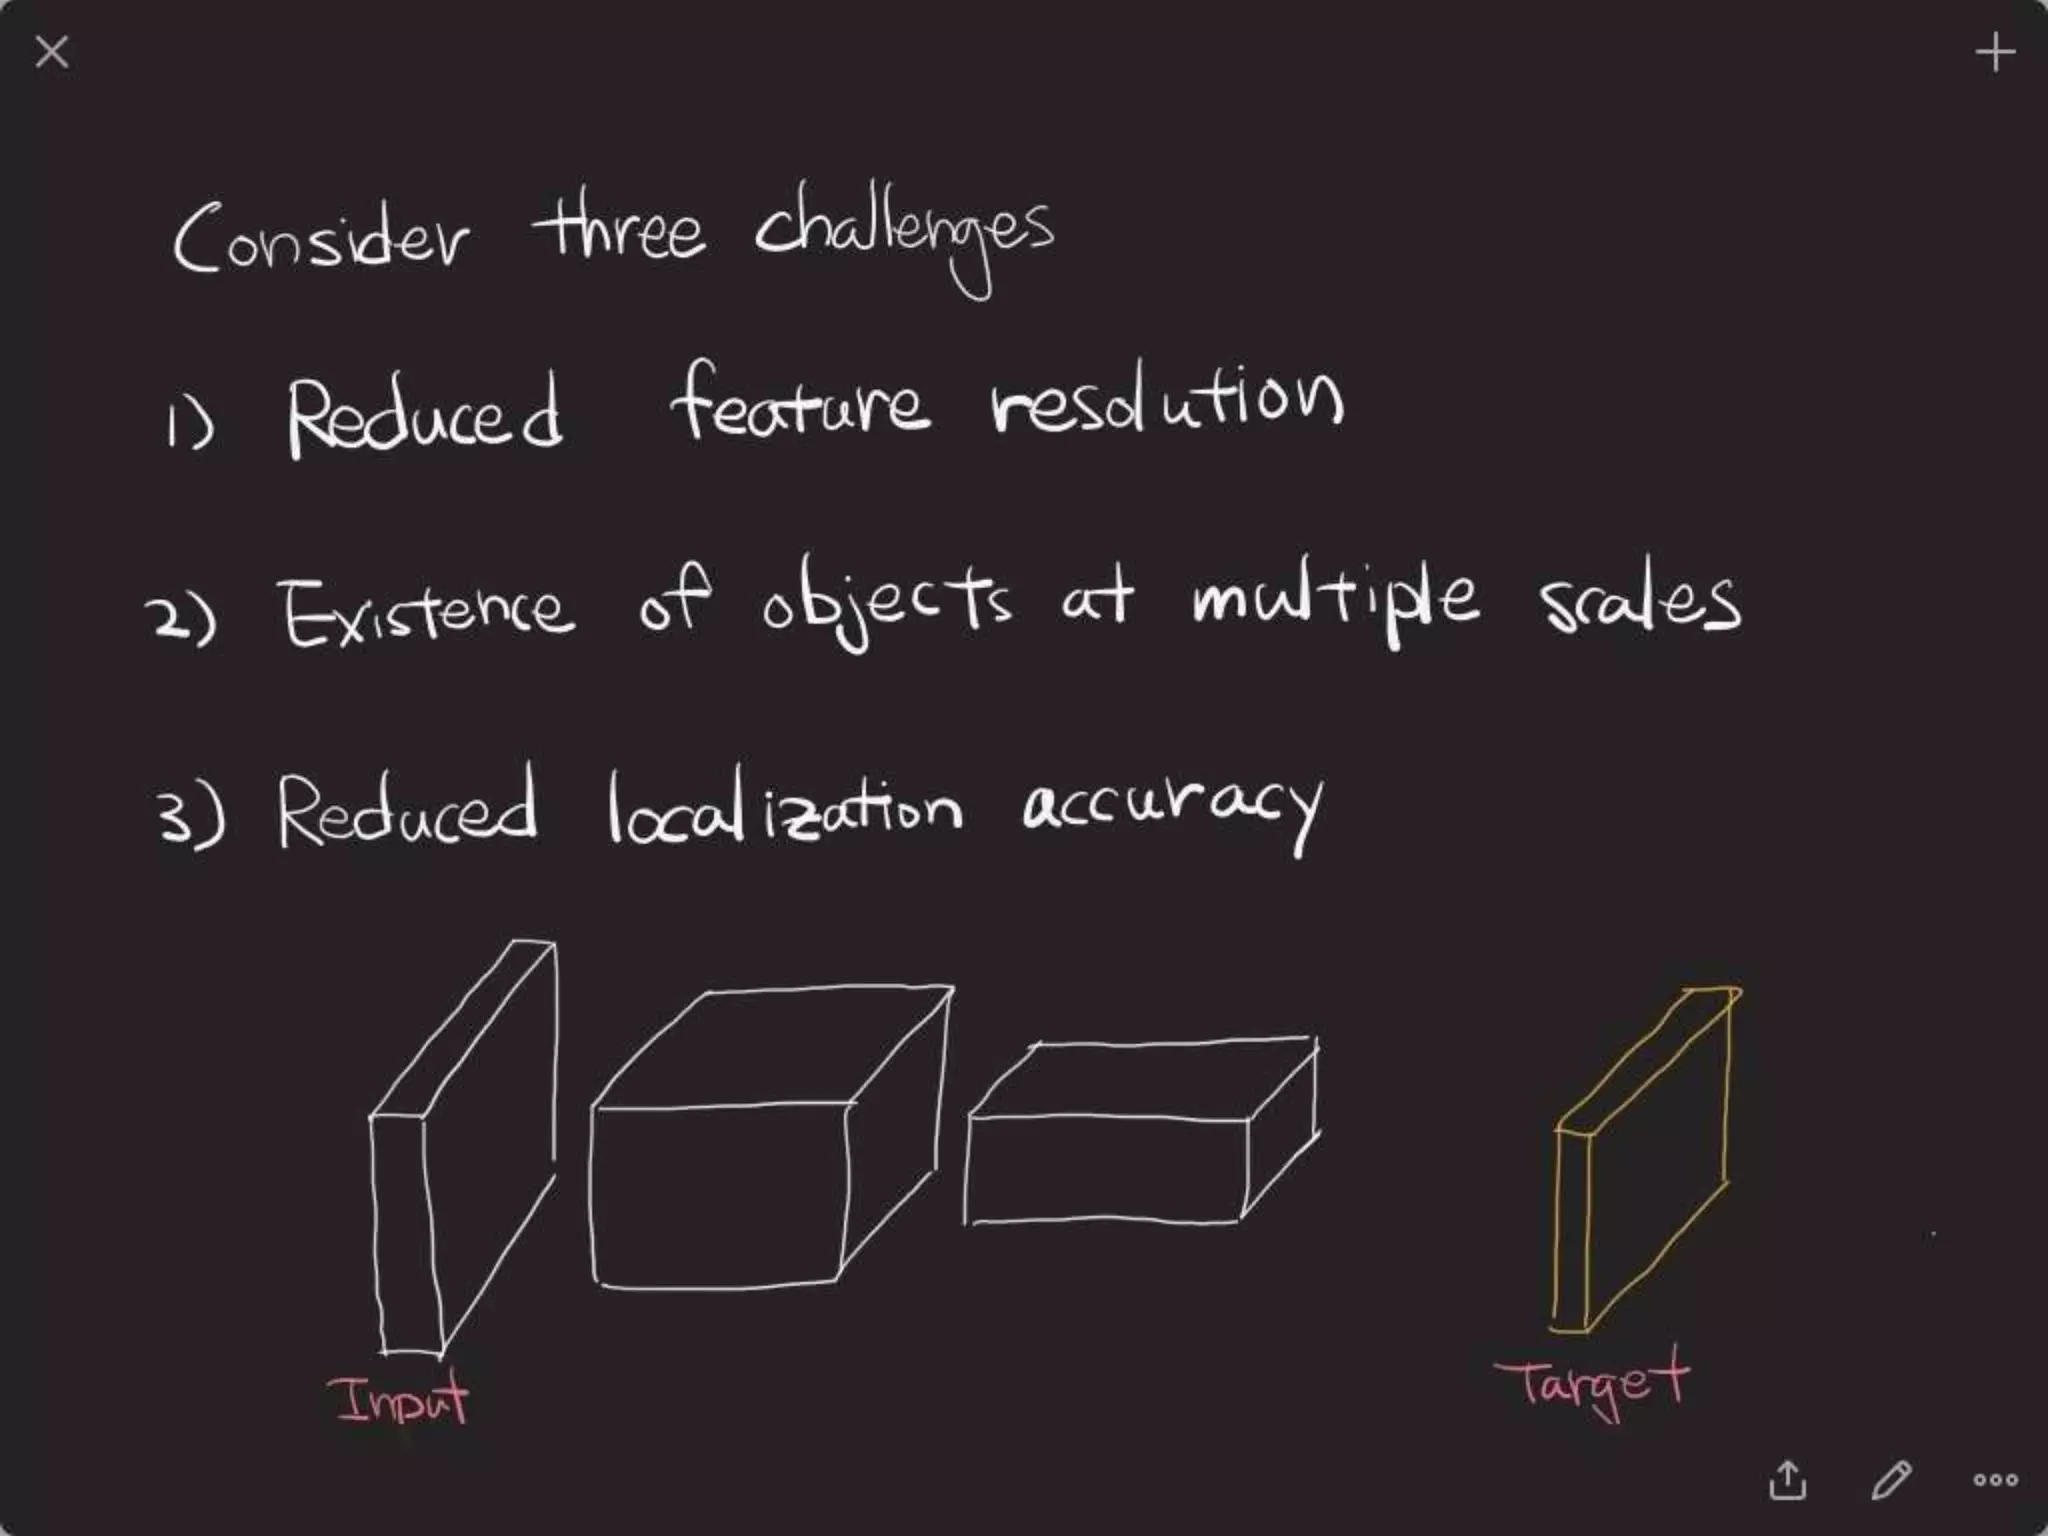 Consider three challenges
1) Reduced feature resolution
2) Existence of objects at multiple scales
3) Reduced localization accuracy
Input
Target